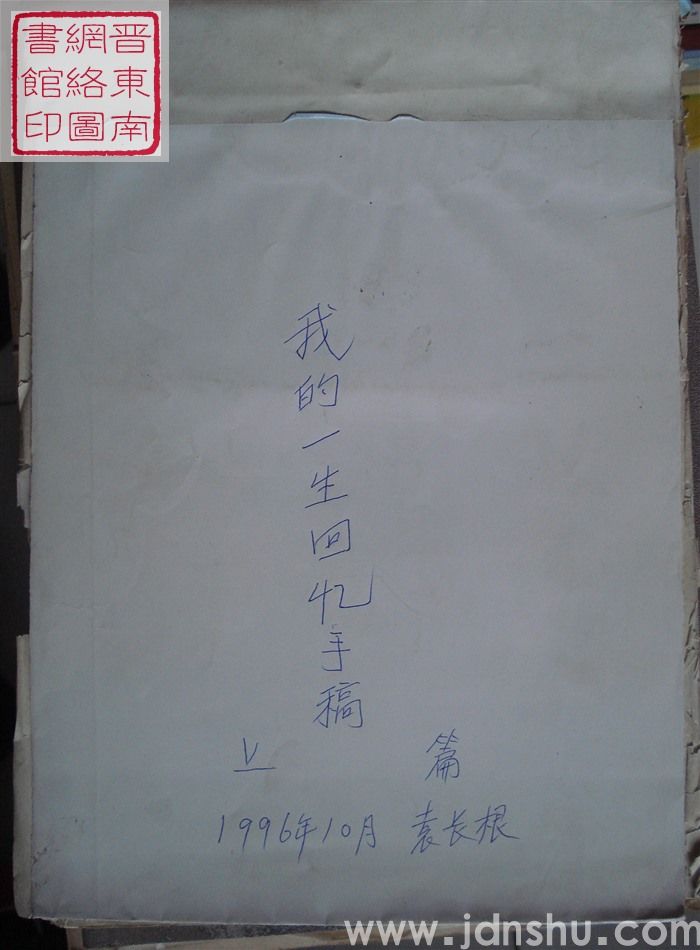 晋東南
網絡圖
書館印
我的一生回忆手稿
上 篇
1996年10月 袁长根
www.jdnshu.com